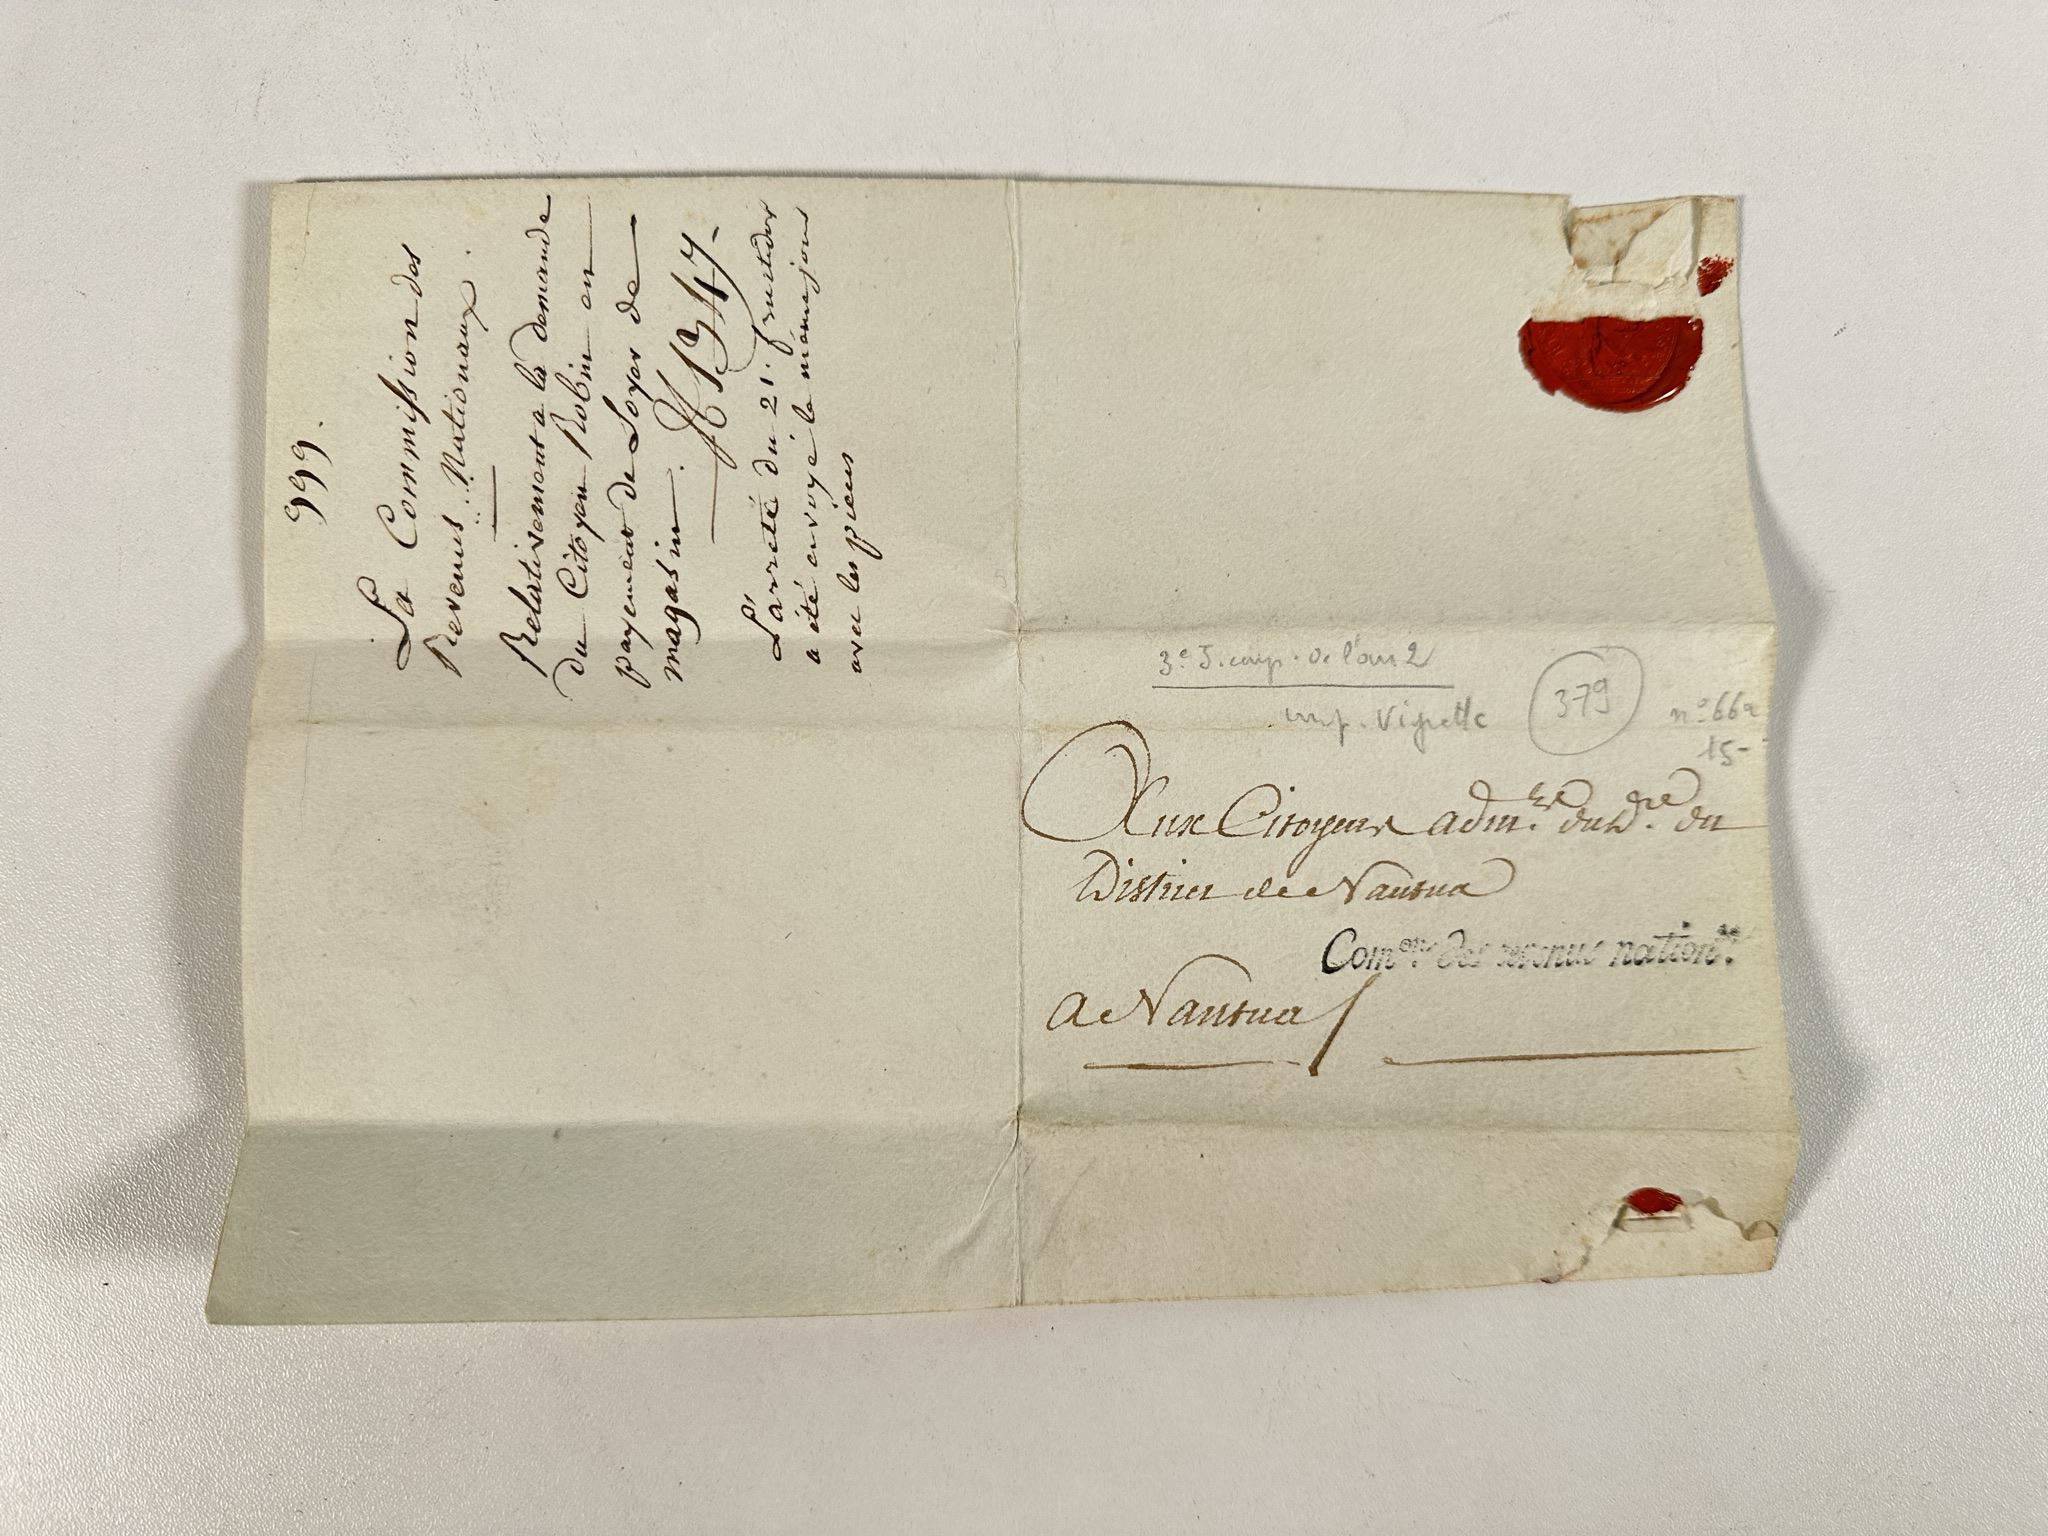 999.
La Commission des
Revenus Nationaux.
Relativement a la demande
du Citoyen Robin en
payement de Loyer de
magasin.
№ 1347
L'arreté du 21. fructidor
a été envoyé le même jour
avec les pieces
3e J. comp. de l'an 2
imp. Vignette
379
n° 66a
15-
Aux Citoyens admrs du Dre du
District de Nantua
Comon des revenus nationx.
a Nantua